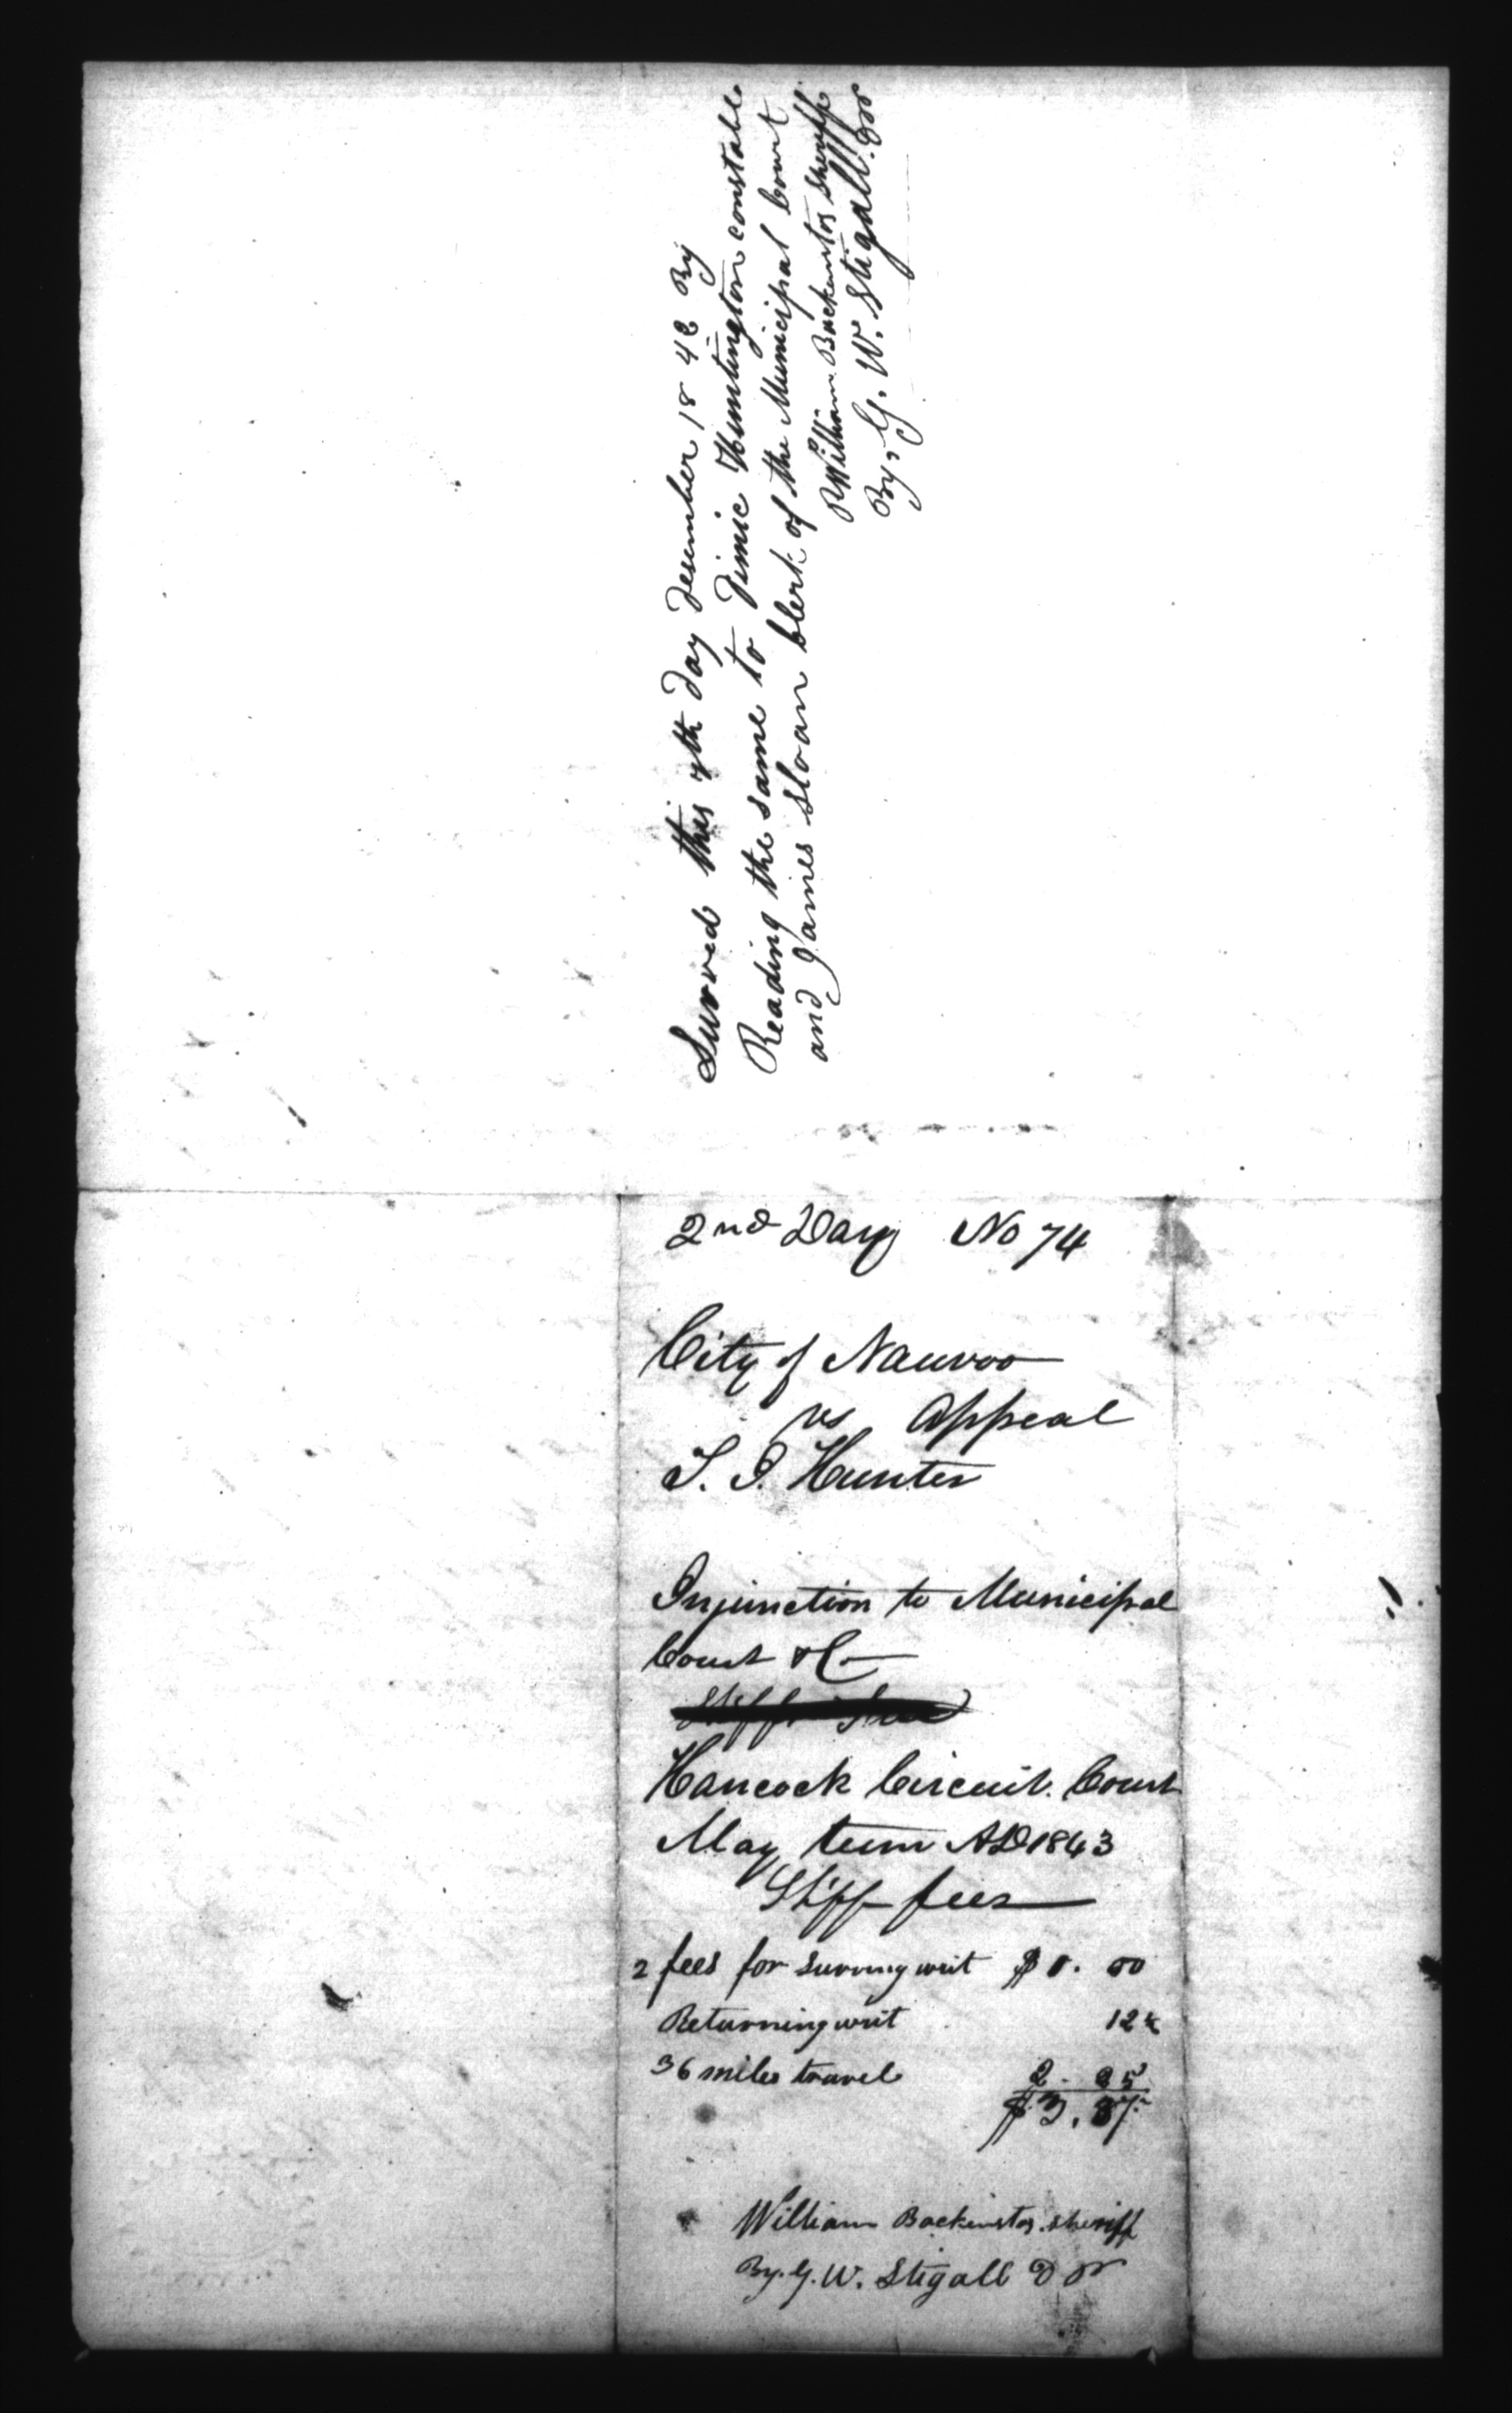 Surved this 7th day Desember 1842 By
Reading the same to Dimic Huntington constable
and James Sloan Clerk of the Municipal Court
William Backenstos Sheriff
By, G. W. Stigall.
2nd Day No 74
City of Nauvoo
vs Appeal
T. J. Hunter
Injunction to Municipal
Court &C
Shffs fees
Hancock Circuit Court
May term AD 1843
Shff fees
2 fees for Surving writ $1. 00
Returning writ 12½
36 miles travel 2. 25
$3, 37
William Backenstos, sheriff
By. G. W. Stigall